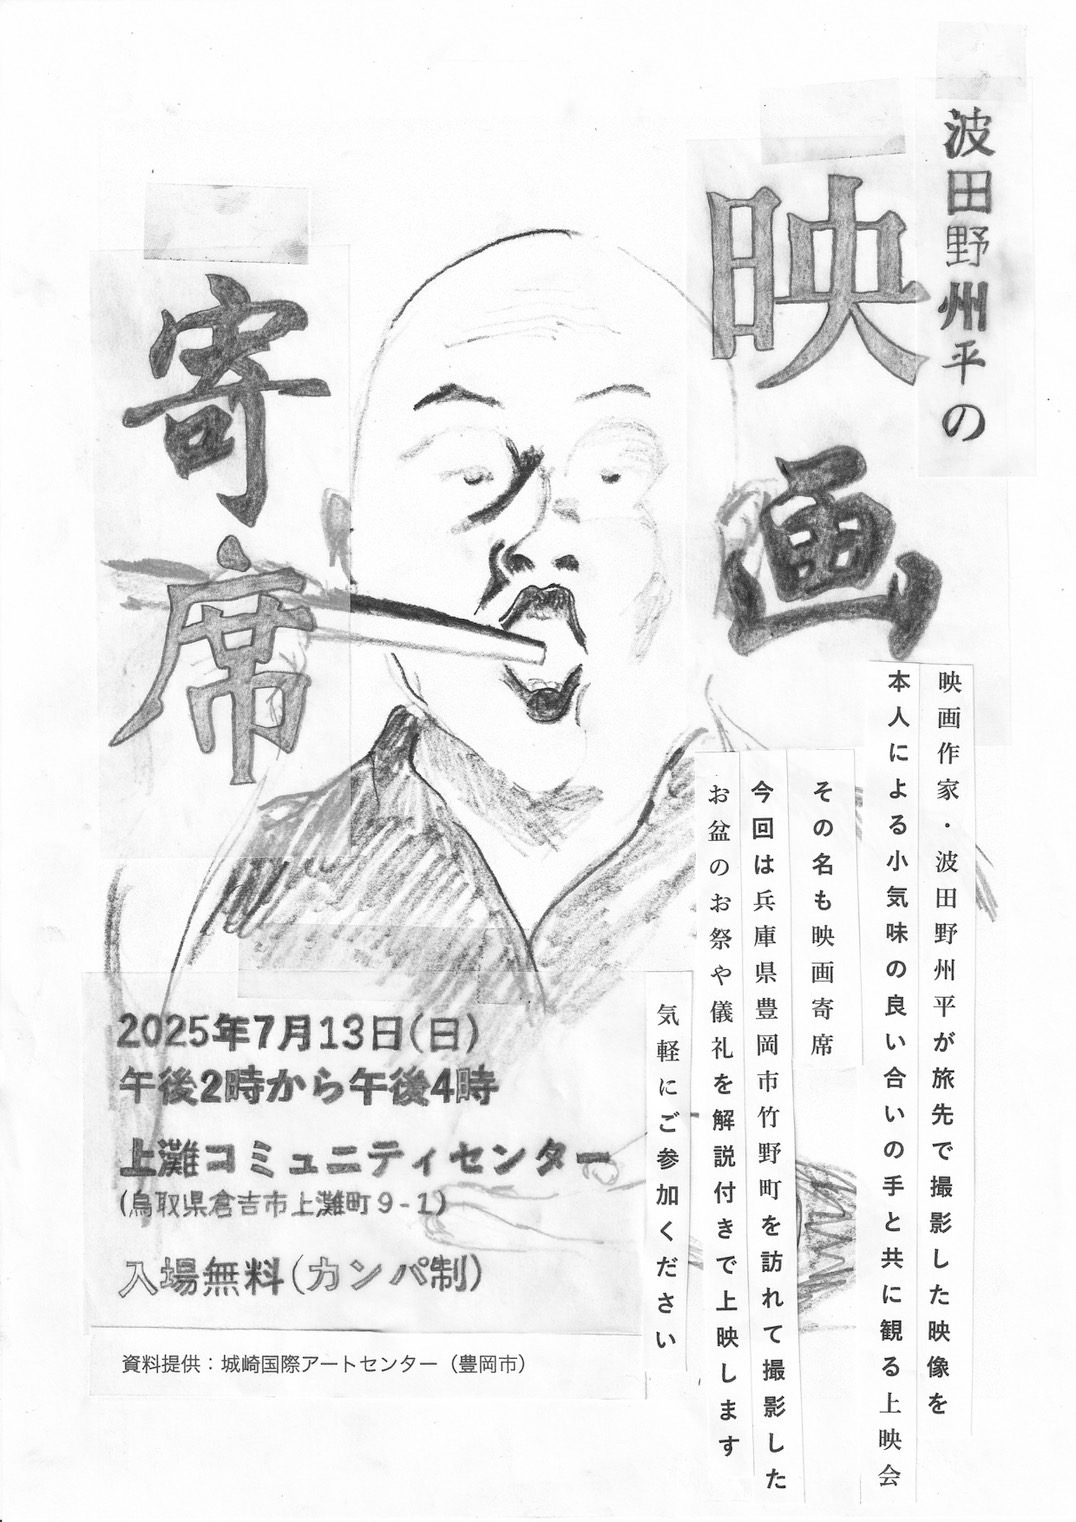 波田野州平の
映画
寄席
映画作家・波田野州平が旅先で撮影した映像を
本人による小気味の良い合いの手と共に観る上映会
その名も映画寄席
今回は兵庫県豊岡市竹野町を訪れて撮影した
お盆のお祭や儀礼を解説付きで上映します
気軽にご参加ください
2025年7月13日(日)
午後2時から午後4時
上灘コミュニティセンター
(鳥取県倉吉市上灘町9-1)
入場無料(カンパ制)
資料提供：城崎国際アートセンター（豊岡市）